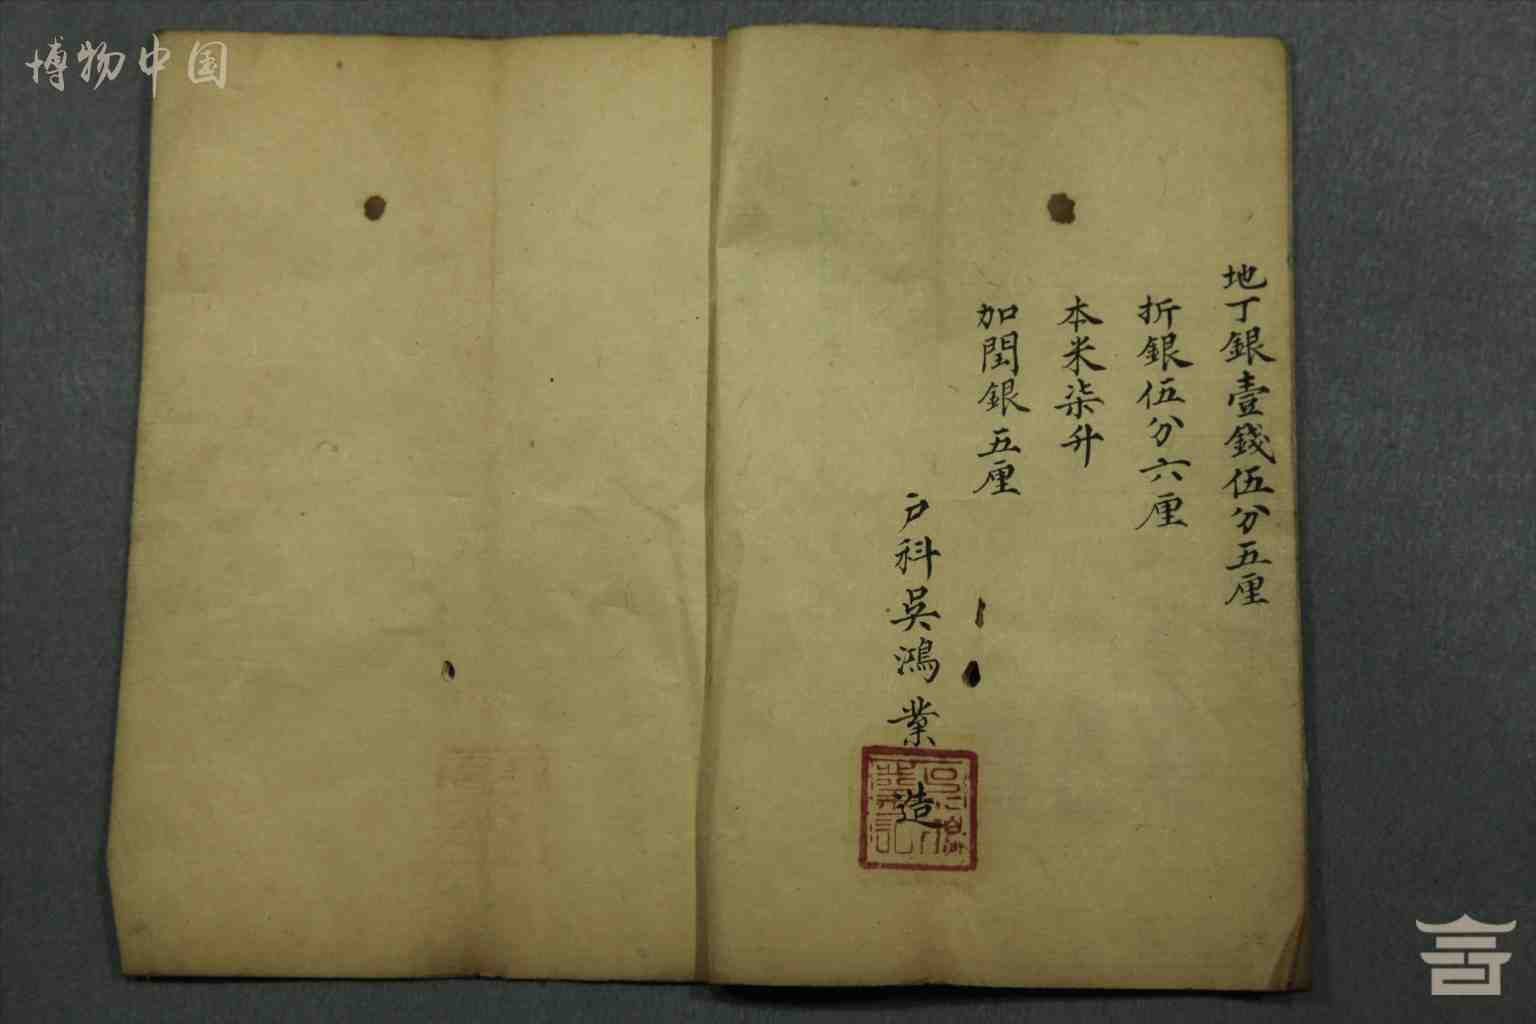 博物中国
地丁銀壹錢伍分五厘
折銀伍分六厘
本米柒升
加閏銀五厘
户科吳鴻業造